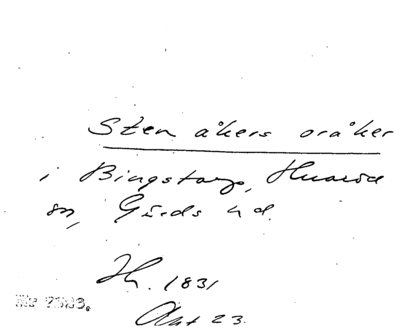 Sten åkers oråker
i Bingstorp, Huaröd
sn, Gärds hd.
H. 1831
Akt 23.